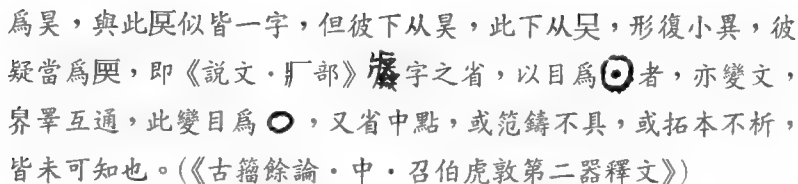 爲昊，與此似皆一字，但彼下从昊，此下从，形復小異，彼
疑當爲，即《説文·部》字之省，以目爲⊙者，亦變文，
睪互通，此變目爲○，又省中點，或范鑄不具，或拓本不析，
皆未可知也。(《古籀餘論·中·召伯虎敦第二器釋文》)